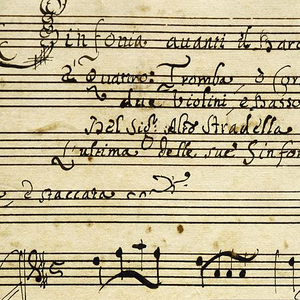 Sinfonia avanti il Bar
a' Quattro: Tromba, è
due Violini, è Basso
Del Sig.r Aless Stradella
L'ultima delle sue Sinfon
è staccata